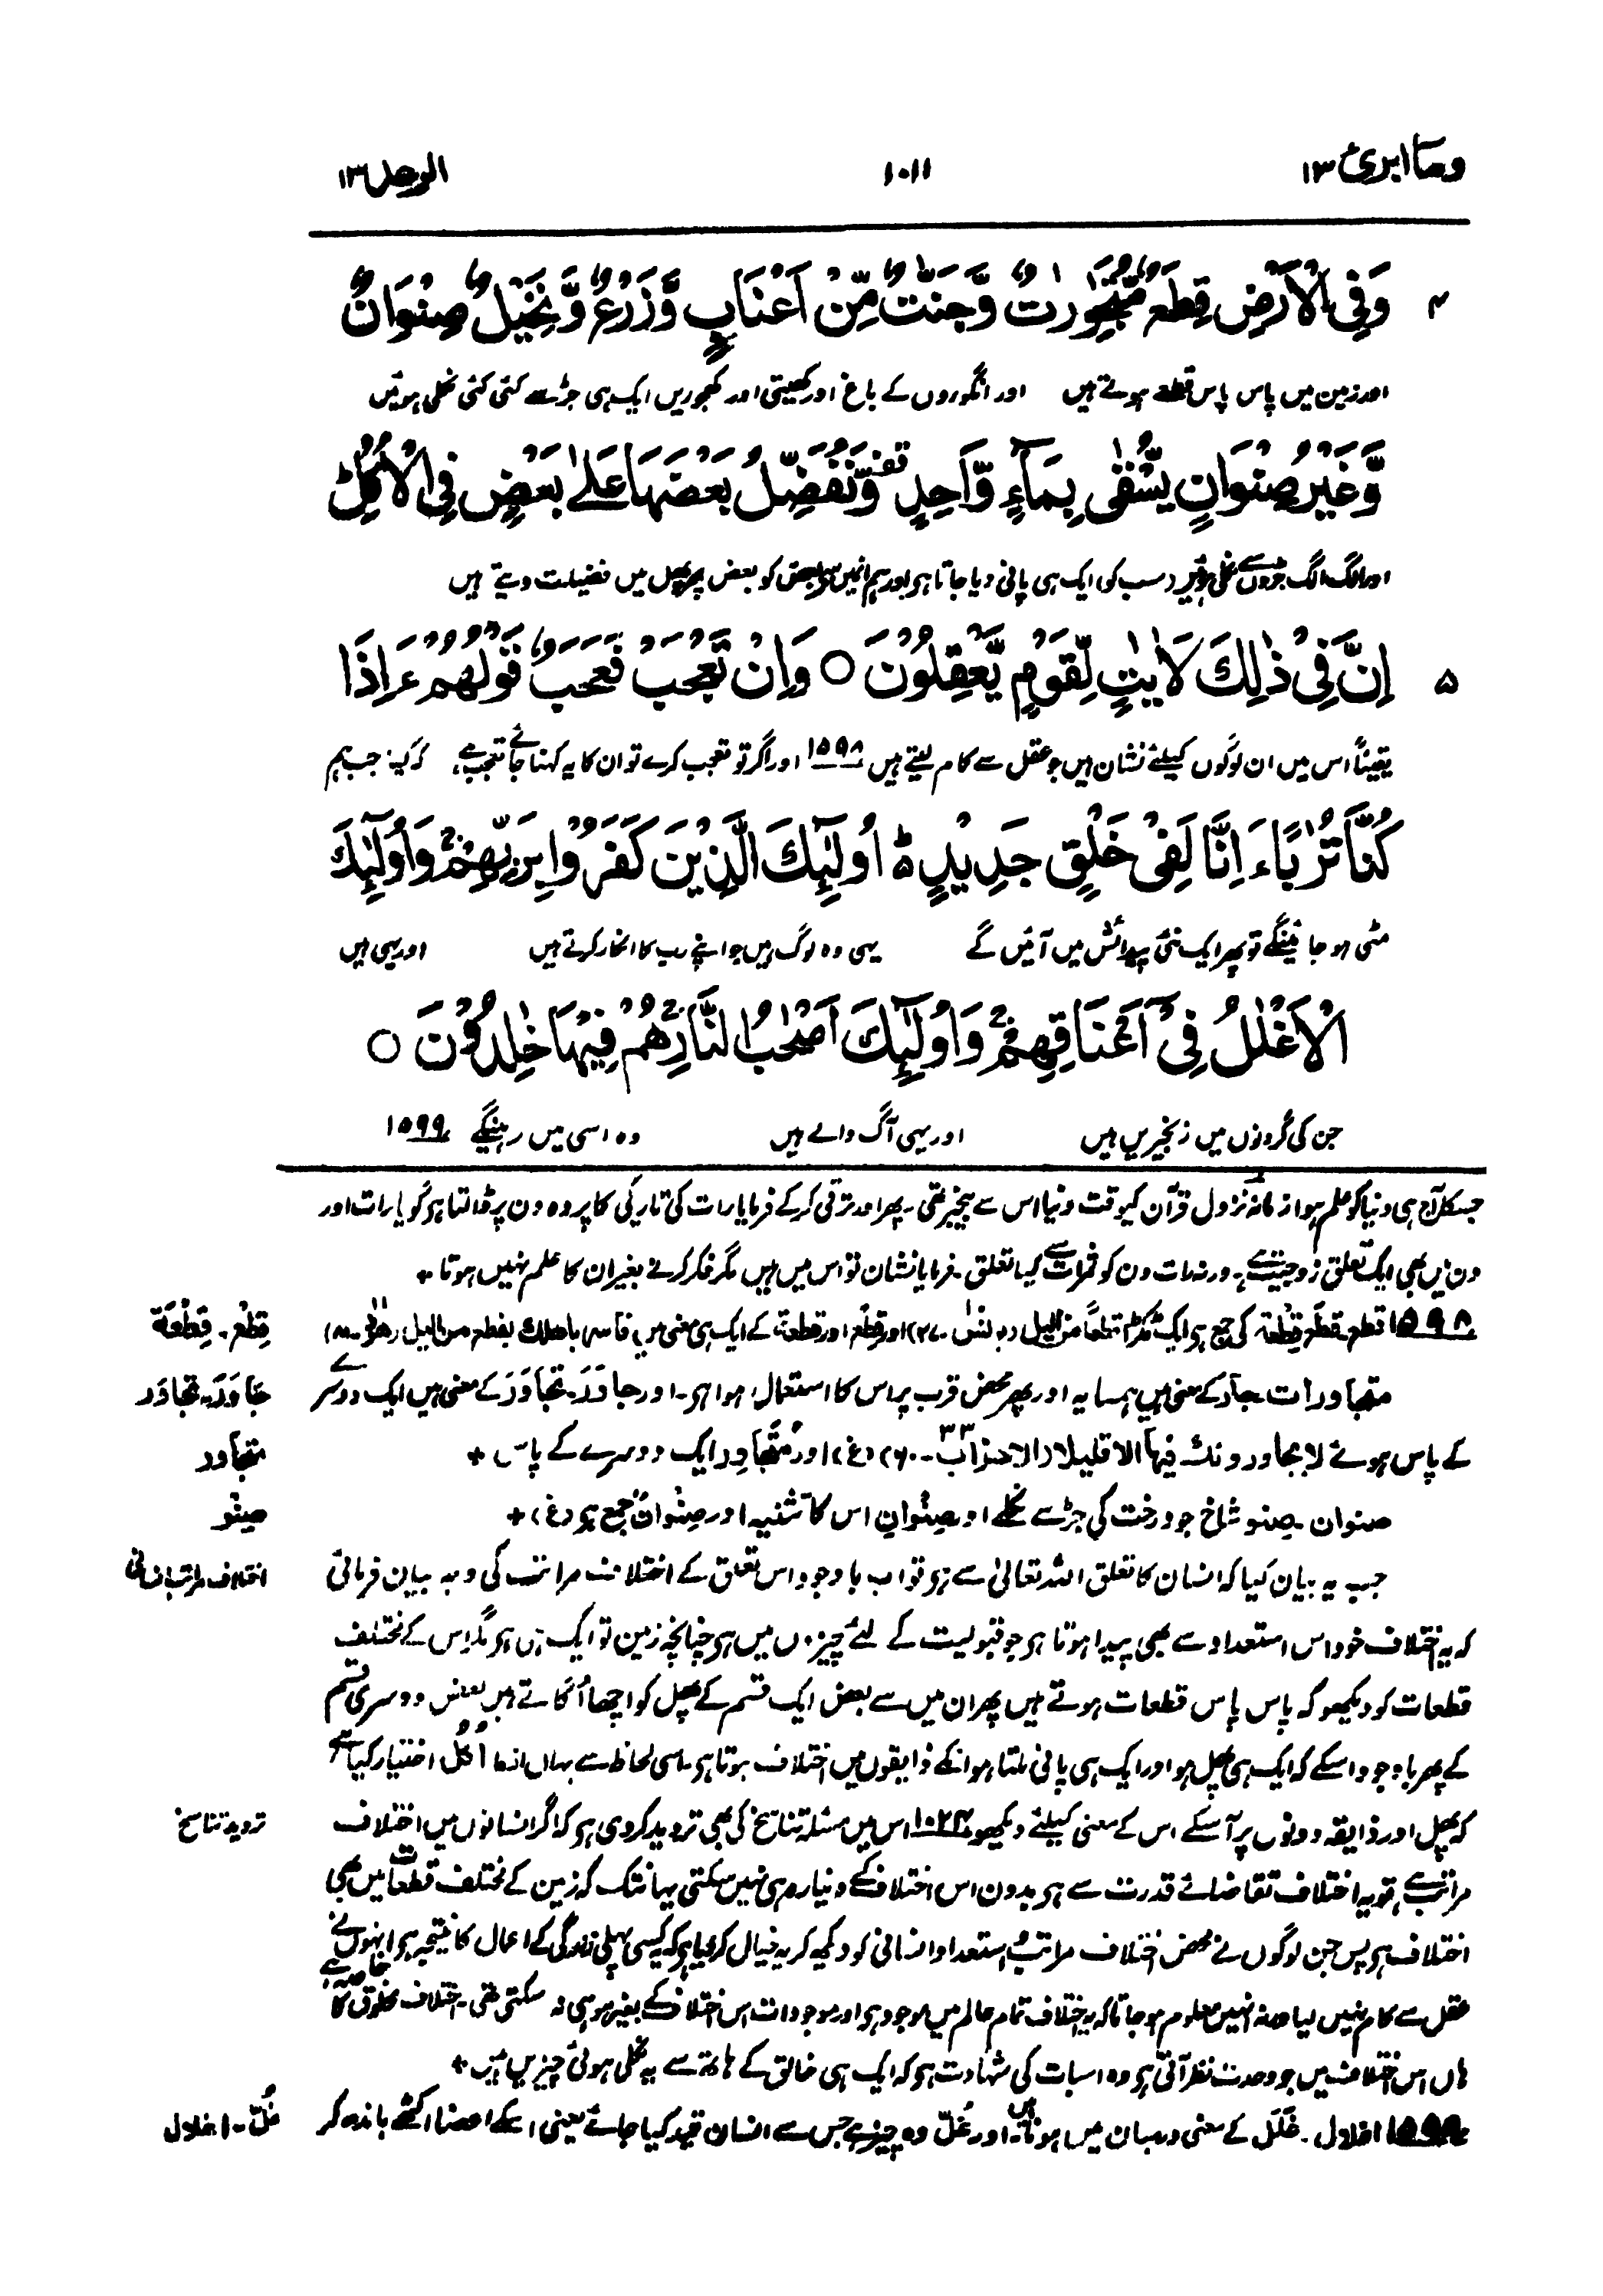 وما ابرئ ١٣
١٠١١
الرعد ١٣
٤ وَفِي الْاَرْضِ قِطَعٌ مُّتَجٰوِرٰتٌ وَّجَنّٰتٌ مِّنْ اَعْنَابٍ وَّزَرْعٌ وَّنَخِيْلٌ صِنْوَانٌ
اور زمین میں پاس پاس قطعے ہوتے ہیں اور انگوروں کے باغ اور کھیتی اور کھجوریں ایک ہی جڑ سے کئی کئی نکلی ہوئیں
وَّغَيْرُ صِنْوَانٍ يُّسْقٰى بِمَآءٍ وَّاحِدٍ قف وَّنُفَضِّلُ بَعْضَهَا عَلٰى بَعْضٍ فِي الْاُكُلِ ط
اور الگ الگ جڑوں سے نکلی ہوئیں سب کو ایک ہی پانی دیا جاتا ہے اور ہم انہیں سے بعض کو بعض پر پھل میں فضیلت دیتے ہیں
٥ اِنَّ فِيْ ذٰلِكَ لَاٰيٰتٍ لِّقَوْمٍ يَّعْقِلُوْنَ ○ وَاِنْ تَعْجَبْ فَعَجَبٌ قَوْلُهُمْ ءَاِذَا
یقیناً اس میں ان لوگوں کیلئے نشان ہیں جو عقل سے کام لیتے ہیں ۱۵۹۸ اور اگر تو تعجب کرے تو ان کا یہ کہنا جائے تعجب ہے، کہ کیا جب ہم
كُنَّا تُرٰبًا ءَاِنَّا لَفِيْ خَلْقٍ جَدِيْدٍ ۵ اُولٰٓئِكَ الَّذِيْنَ كَفَرُوْا بِرَبِّهِمْ ۚ وَاُولٰٓئِكَ
مٹی ہو جائینگے تو پھر ایک نئی پیدائش میں آئیں گے یہی وہ لوگ ہیں جو اپنے رب کا انکار کرتے ہیں اور یہی ہیں
الْاَغْلٰلُ فِيْٓ اَعْنَاقِهِمْ ۚ وَاُولٰٓئِكَ اَصْحٰبُ النَّارِ ۚ هُمْ فِيْهَا خٰلِدُوْنَ ○
جن کی گردنوں میں زنجیریں ہیں اور یہی آگ والے ہیں وہ اسی میں رہینگے ۱۵۹۹
جسکا آج ہی دنیا کو علم ہوا زمانہ نزول قرآن کیوقت دنیا اس سے بیخبر تھی۔ پھر اور ترقی کرکے فرمایا رات کی تاریکی کا پردہ دن پر ڈالتا ہے گویا رات اور
دن میں بھی ایک تعلق زوجیت ہے۔ ورنہ رات دن کو ثمرات سے کیا تعلق۔ فرمایا نشان تو اس میں ہیں مگر فکر کرنے بغیر ان کا علم نہیں ہوتا +
۱۵۹۸ قطع۔ قِطَع قِطْعَۃ کی جمع ہے ایک ٹکڑا قطعاً من الیل (یونس ۲۷) اور قِطْع اور قطعۃ کے ایک ہی معنی ہیں فاسر باھلك بقطع من الیل (ھود۔۸۱)
قِطْع۔ قِطْعَۃ
متجاورات۔ جار کے معنی ہیں ہمسایہ اور پھر محض قرب پر اس کا استعمال ہوا ہے۔ اور جاوَرَ۔ تجاوَرَ کے معنی ہیں ایک دوسرے
جَاوَرَ۔ تَجَاوَر
کے پاس ہوئے لا یجاورونك فیھا الا قلیلا (الاحزاب ۳۳۔۶۰) (غ) اور مُتَجاوِر ایک دوسرے کے پاس +
متجاور
صنوان۔ صِنو شاخ جو درخت کی جڑ سے نکلے اور صِنْوانِ اس کا تثنیہ اور صِنْوانٌ جمع ہے (غ) +
صِنْو
جب یہ بیان کیا کہ انسان کا تعلق اللہ تعالیٰ سے ہے تو اب باوجود اس تعلق کے اختلاف مراتب کی وجہ بیان فرمائی
اختلاف مراتب انسانی
کہ یہ اختلاف خود اس استعداد سے بھی پیدا ہوتا ہے جو قبولیت کے لئے چیزوں میں ہے چنانچہ زمین تو ایک ہی ہے مگر اس کے مختلف
قطعات کو دیکھو کہ پاس پاس قطعات ہوتے ہیں پھر ان میں سے بعض ایک قسم کے پھل کو اچھا اُگاتے ہیں بعض دوسری قسم
کے پھر باوجود اسکے کہ ایک ہی پھل ہو اور ایک ہی پانی ملتا ہو انکے ذایقوں میں اختلاف ہوتا ہے اسی لحاظ سے یہاں لفظ اُکُل اختیار کیا ہے
کہ پھل اور ذایقہ دونوں پر آسکے اس کے معنی کیلئے دیکھو ۱۰۲۴ اس میں مسئلہ تناسخ کی بھی تردید کردی ہے کہ اگر انسانوں میں اختلاف
تردید تناسخ
مراتب ہے، تو یہ اختلاف تقاضائے قدرت سے ہے بدون اس اختلاف کے دنیا رہ ہی نہیں سکتی یہانتک کہ زمین کے مختلف قطعات میں بھی
اختلاف ہے پس جن لوگوں نے محض اختلاف مراتب استعداد انسانی کو دیکھ کر یہ خیال کر لیا ہے کہ یہ کسی پہلی زندگی کے اعمال کا نتیجہ ہے انہوں نے
عقل سے کام نہیں لیا ورنہ انہیں معلوم ہو جاتا کہ یہ اختلاف تمام عالم میں موجود ہے اور موجودات اس اختلاف کے بغیر ہو ہی نہ سکتی تھی۔ اختلاف مخلوق کا خاصہ ہے
ہاں اس اختلاف میں جو وحدت نظر آتی ہے وہ اسبات کی شہادت ہے کہ ایک ہی خالق کے ہاتھ سے یہ نکلی ہوئی چیزیں ہیں +
۱۵۹۹ اغلال۔ غَلَل کے معنی درمیان میں ہونا ہیں۔ اور غُلّ وہ چیز ہے جس سے انسان قید کیا جائے یعنی اسکے اعضا اکٹھے باندھ کر
غُلّ۔ اغلال